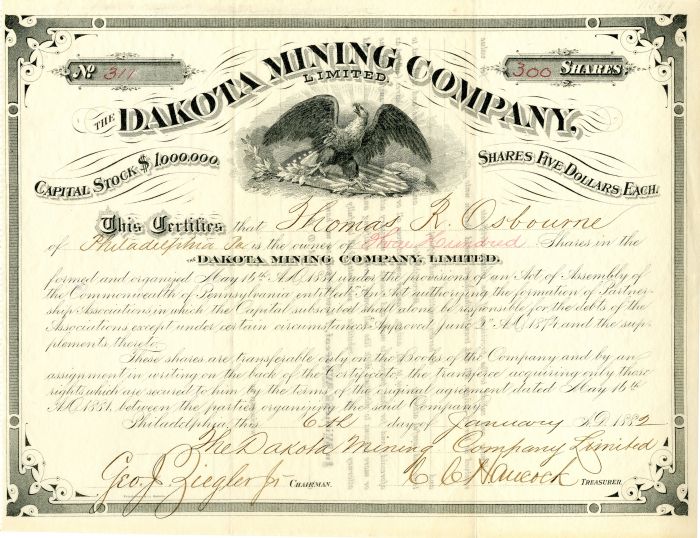 No. 311
300 SHARES
THE DAKOTA MINING COMPANY,
LIMITED.
CAPITAL STOCK $1,000,000.
SHARES FIVE DOLLARS EACH.
This Certifies that Thomas R. Osbourne
of Philadelphia Pa is the owner of Three Hundred Shares in the
THE DAKOTA MINING COMPANY, LIMITED.
formed and organized May 14th A.D. 1881 under the provisions of an Act of Assembly of
the Commonwealth of Pennsylvania entitled "An Act authorizing the formation of Partner-
ship Associations in which the Capital subscribed shall alone be responsible for the debts of the
Associations except under certain circumstances" Approved June 2d A.D. 1874 and the sup-
plements thereto.
These shares are transferable only on the Books of the Company and by an
assignment in writing on the back of the Certificate the transferee acquiring only those
rights which are secured to him by the terms of the original agreement dated May 14th
A.D. 1881, between the parties organizing the said Company.
Philadelphia this 6th day of January A.D. 1882
The Dakota Mining Company Limited
Geo. J. Ziegler Jr CHAIRMAN. C C Hancock TREASURER.